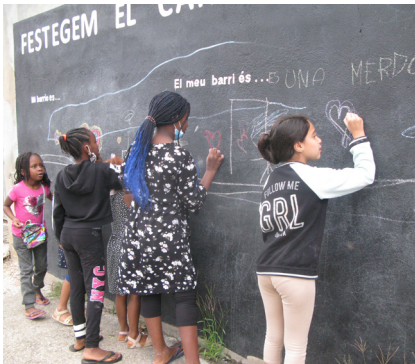 FESTEGEM EL
El meu barri és... ES UNA MERDO
Mi barrio es...
FOLLOW ME
GRL
NYC